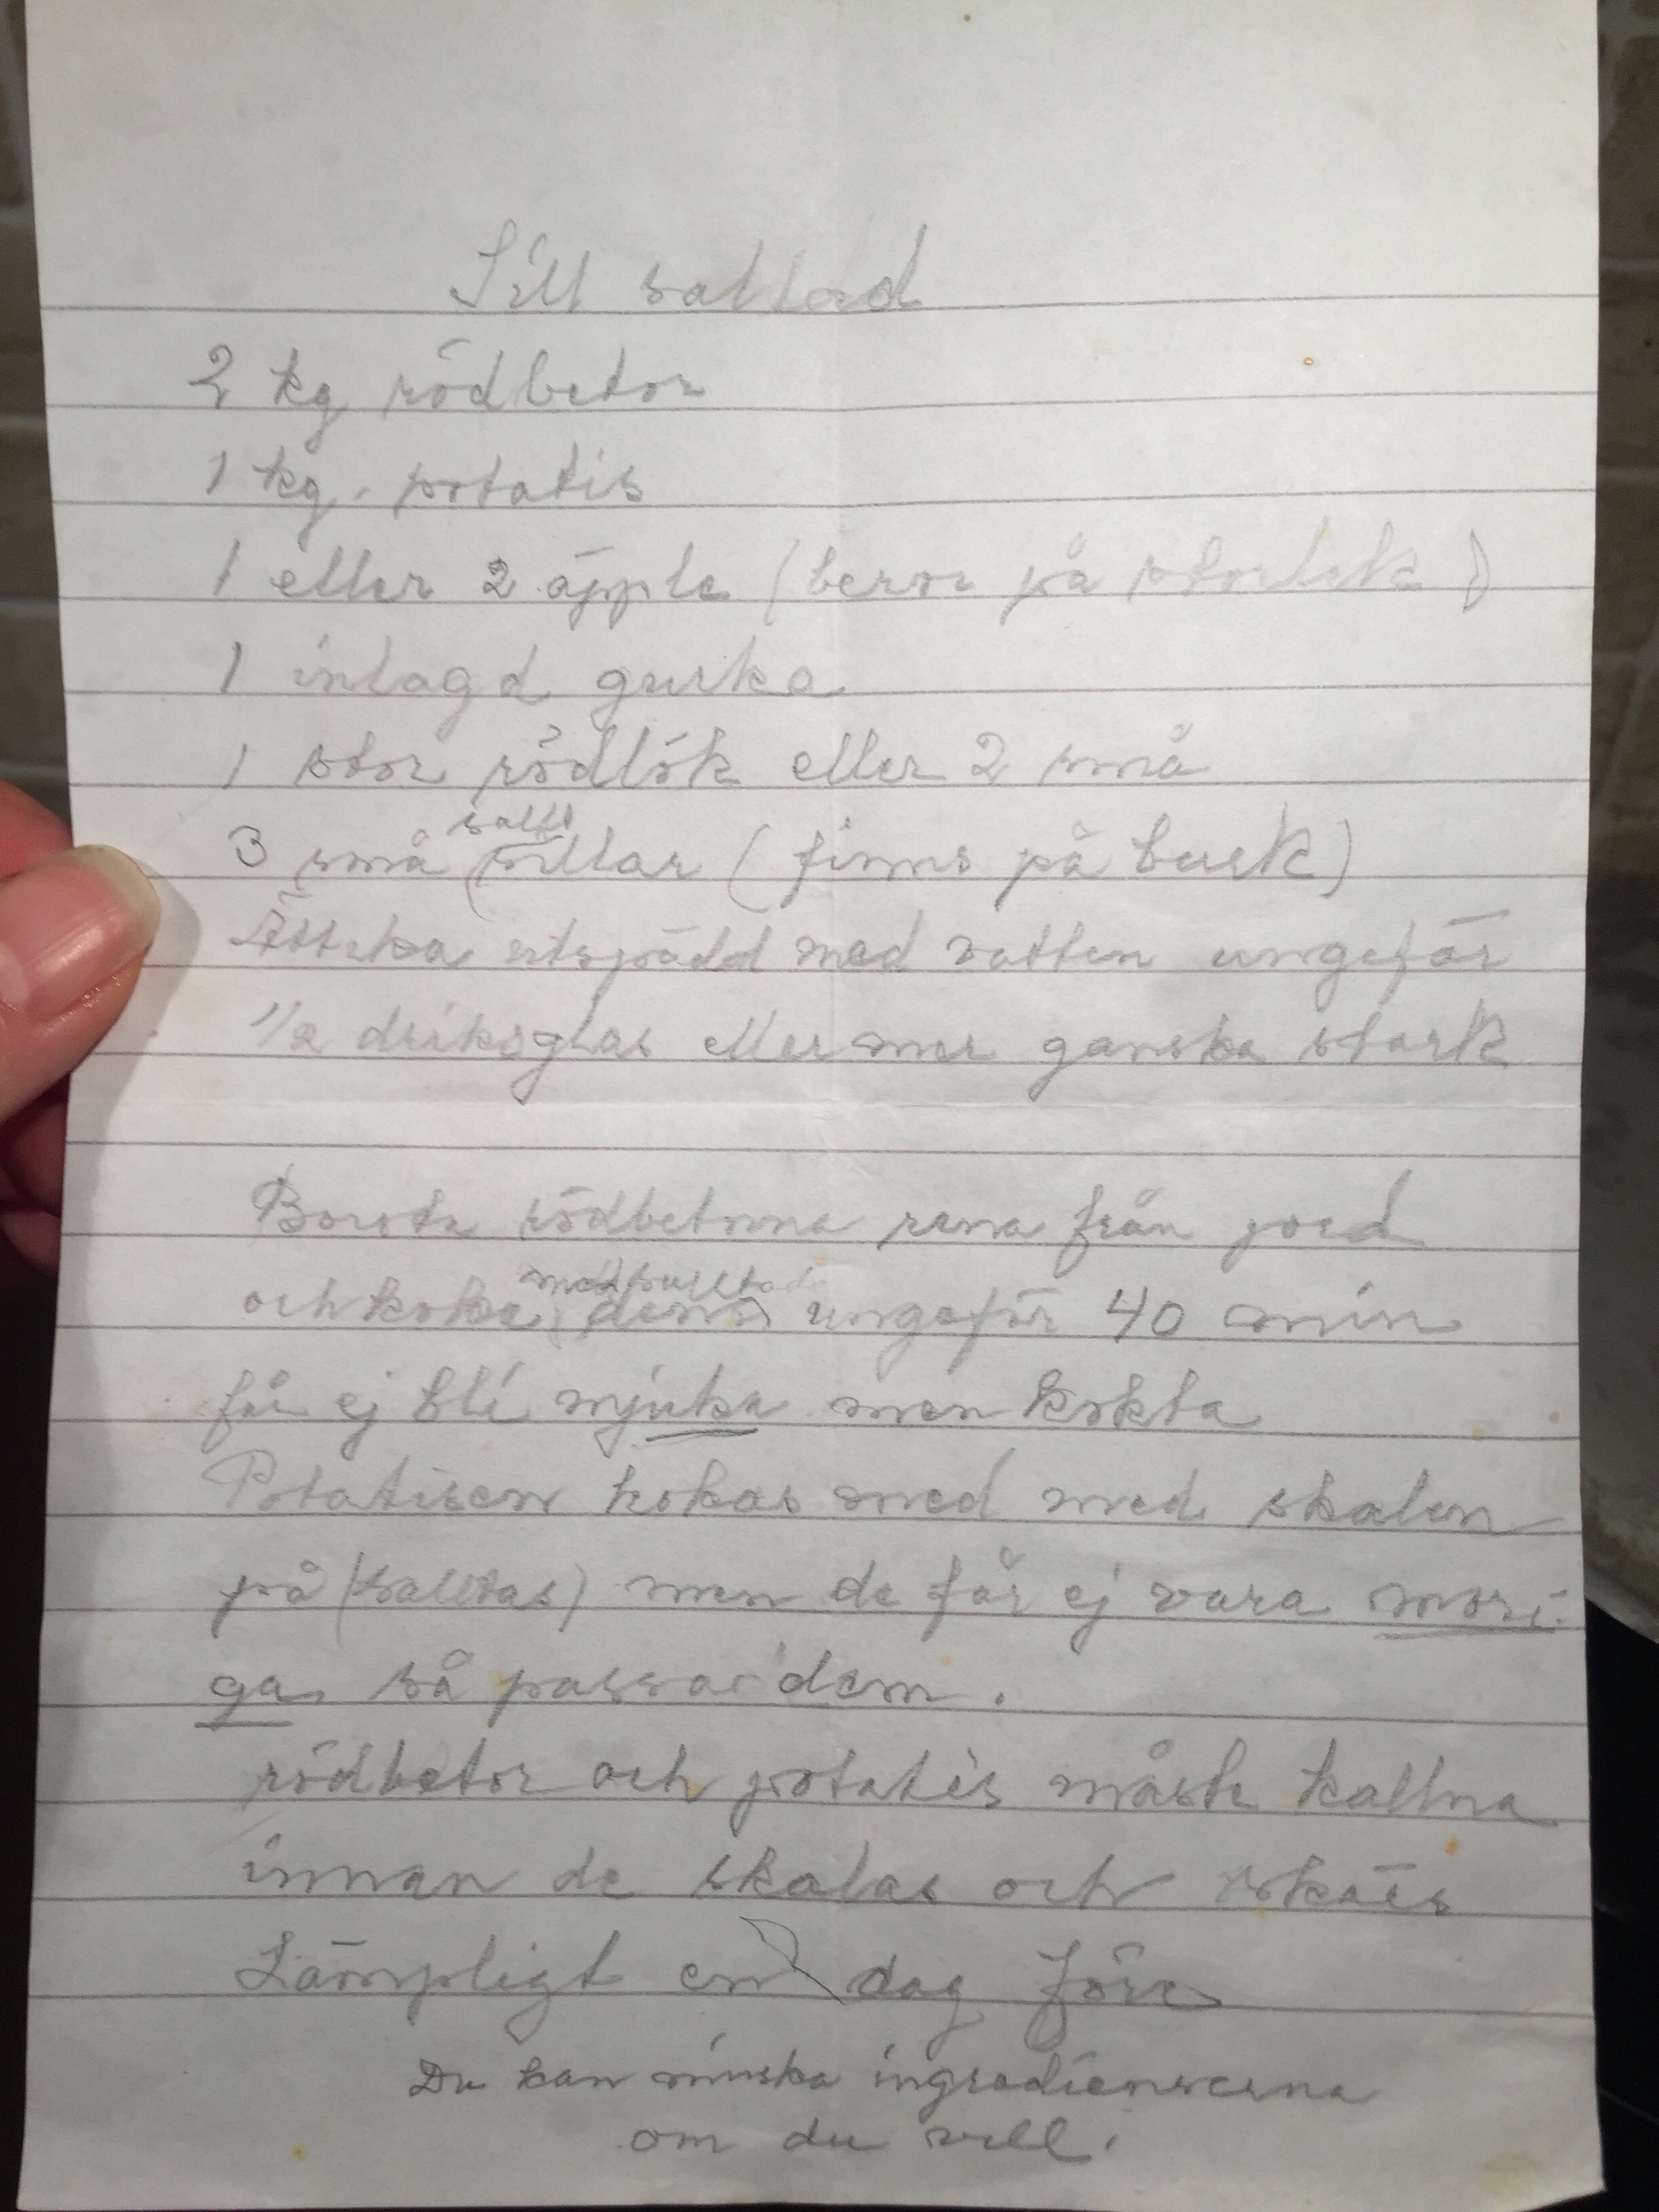 Sill sallad
2 kg rödbetor
1 kg. potatis
1 eller 2 äpple (beror på storlek)
1 inlagd gurka
1 stor rödlök eller 2 små
salt
3 små sillar (finns på burk)
Ättika utspädd med vatten ungefär
1/2 driksglas eller mer ganska stark
Borsta rödbetorna rena från jord
med
och koka dem ungefär 40 min
får ej bli mjuka men kokta
Potatisen kokas med med skalen
på (saltas) men de får ej vara mosi-
ga, så passa dem.
rödbetor och potatis måste kallna
innan de skalas och skäes
Lämpligt en dag före
Du kan minska ingredienserna
om du vill.